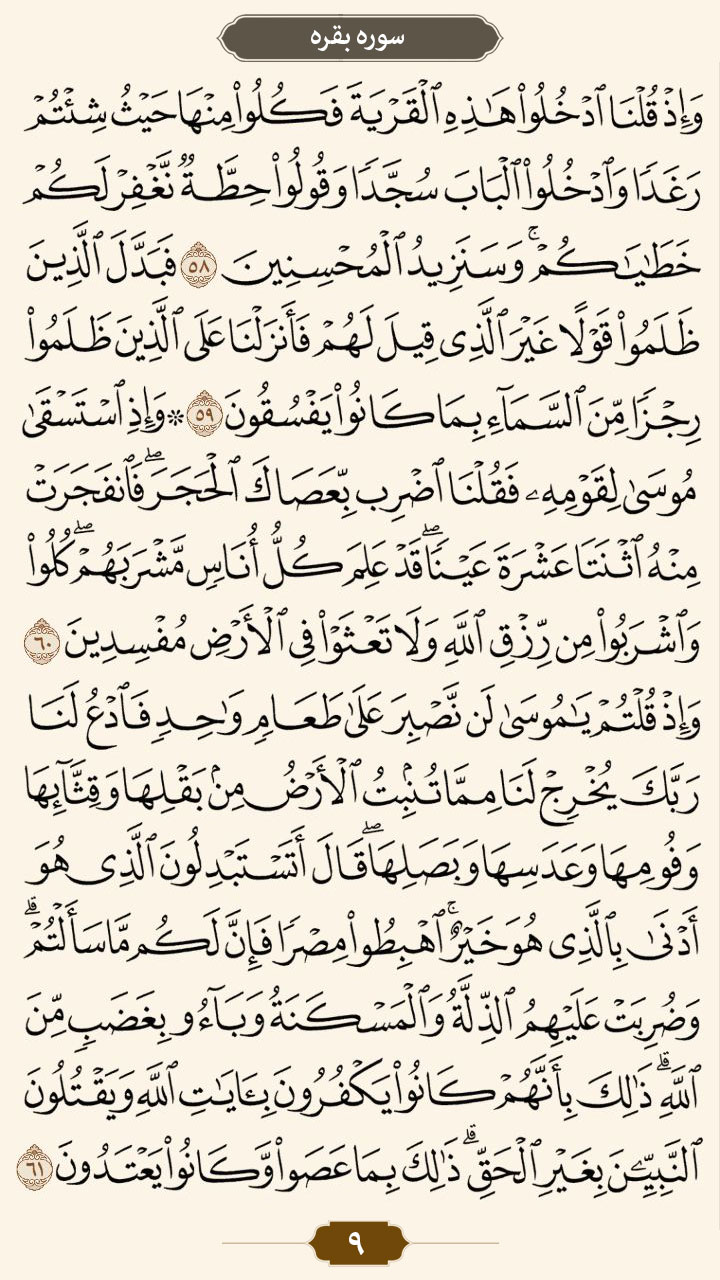 سوره بقره
وَإِذْ قُلْنَا ٱدْخُلُوا۟ هَـٰذِهِ ٱلْقَرْيَةَ فَكُلُوا۟ مِنْهَا حَيْثُ شِئْتُمْ
رَغَدًا وَٱدْخُلُوا۟ ٱلْبَابَ سُجَّدًا وَقُولُوا۟ حِطَّةٌ نَّغْفِرْ لَكُمْ
خَطَـٰيَـٰكُمْ ۚ وَسَنَزِيدُ ٱلْمُحْسِنِينَ ٥٨ فَبَدَّلَ ٱلَّذِينَ
ظَلَمُوا۟ قَوْلًا غَيْرَ ٱلَّذِى قِيلَ لَهُمْ فَأَنزَلْنَا عَلَى ٱلَّذِينَ ظَلَمُوا۟
رِجْزًا مِّنَ ٱلسَّمَآءِ بِمَا كَانُوا۟ يَفْسُقُونَ ٥٩ * وَإِذِ ٱسْتَسْقَىٰ
مُوسَىٰ لِقَوْمِهِۦ فَقُلْنَا ٱضْرِب بِّعَصَاكَ ٱلْحَجَرَ ۖ فَٱنفَجَرَتْ
مِنْهُ ٱثْنَتَا عَشْرَةَ عَيْنًا ۖ قَدْ عَلِمَ كُلُّ أُنَاسٍ مَّشْرَبَهُمْ ۖ كُلُوا۟
وَٱشْرَبُوا۟ مِن رِّزْقِ ٱللَّهِ وَلَا تَعْثَوْا۟ فِى ٱلْأَرْضِ مُفْسِدِينَ ٦٠
وَإِذْ قُلْتُمْ يَـٰمُوسَىٰ لَن نَّصْبِرَ عَلَىٰ طَعَامٍ وَٰحِدٍ فَٱدْعُ لَنَا
رَبَّكَ يُخْرِجْ لَنَا مِمَّا تُنۢبِتُ ٱلْأَرْضُ مِنۢ بَقْلِهَا وَقِثَّآئِهَا
وَفُومِهَا وَعَدَسِهَا وَبَصَلِهَا ۖ قَالَ أَتَسْتَبْدِلُونَ ٱلَّذِى هُوَ
أَدْنَىٰ بِٱلَّذِى هُوَ خَيْرٌ ۚ ٱهْبِطُوا۟ مِصْرًا فَإِنَّ لَكُم مَّا سَأَلْتُمْ ۗ
وَضُرِبَتْ عَلَيْهِمُ ٱلذِّلَّةُ وَٱلْمَسْكَنَةُ وَبَآءُو بِغَضَبٍ مِّنَ
ٱللَّهِ ۗ ذَٰلِكَ بِأَنَّهُمْ كَانُوا۟ يَكْفُرُونَ بِـَٔايَـٰتِ ٱللَّهِ وَيَقْتُلُونَ
ٱلنَّبِيِّـۧنَ بِغَيْرِ ٱلْحَقِّ ۗ ذَٰلِكَ بِمَا عَصَوا۟ وَّكَانُوا۟ يَعْتَدُونَ ٦١
٩